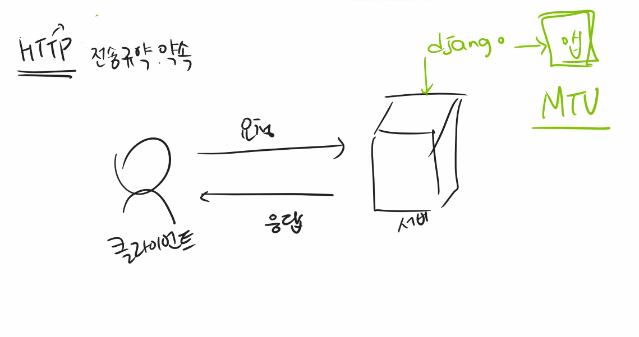 HTTP 전송규약.약속
django
앱
MTV
요청
응답
서버
클라이언트